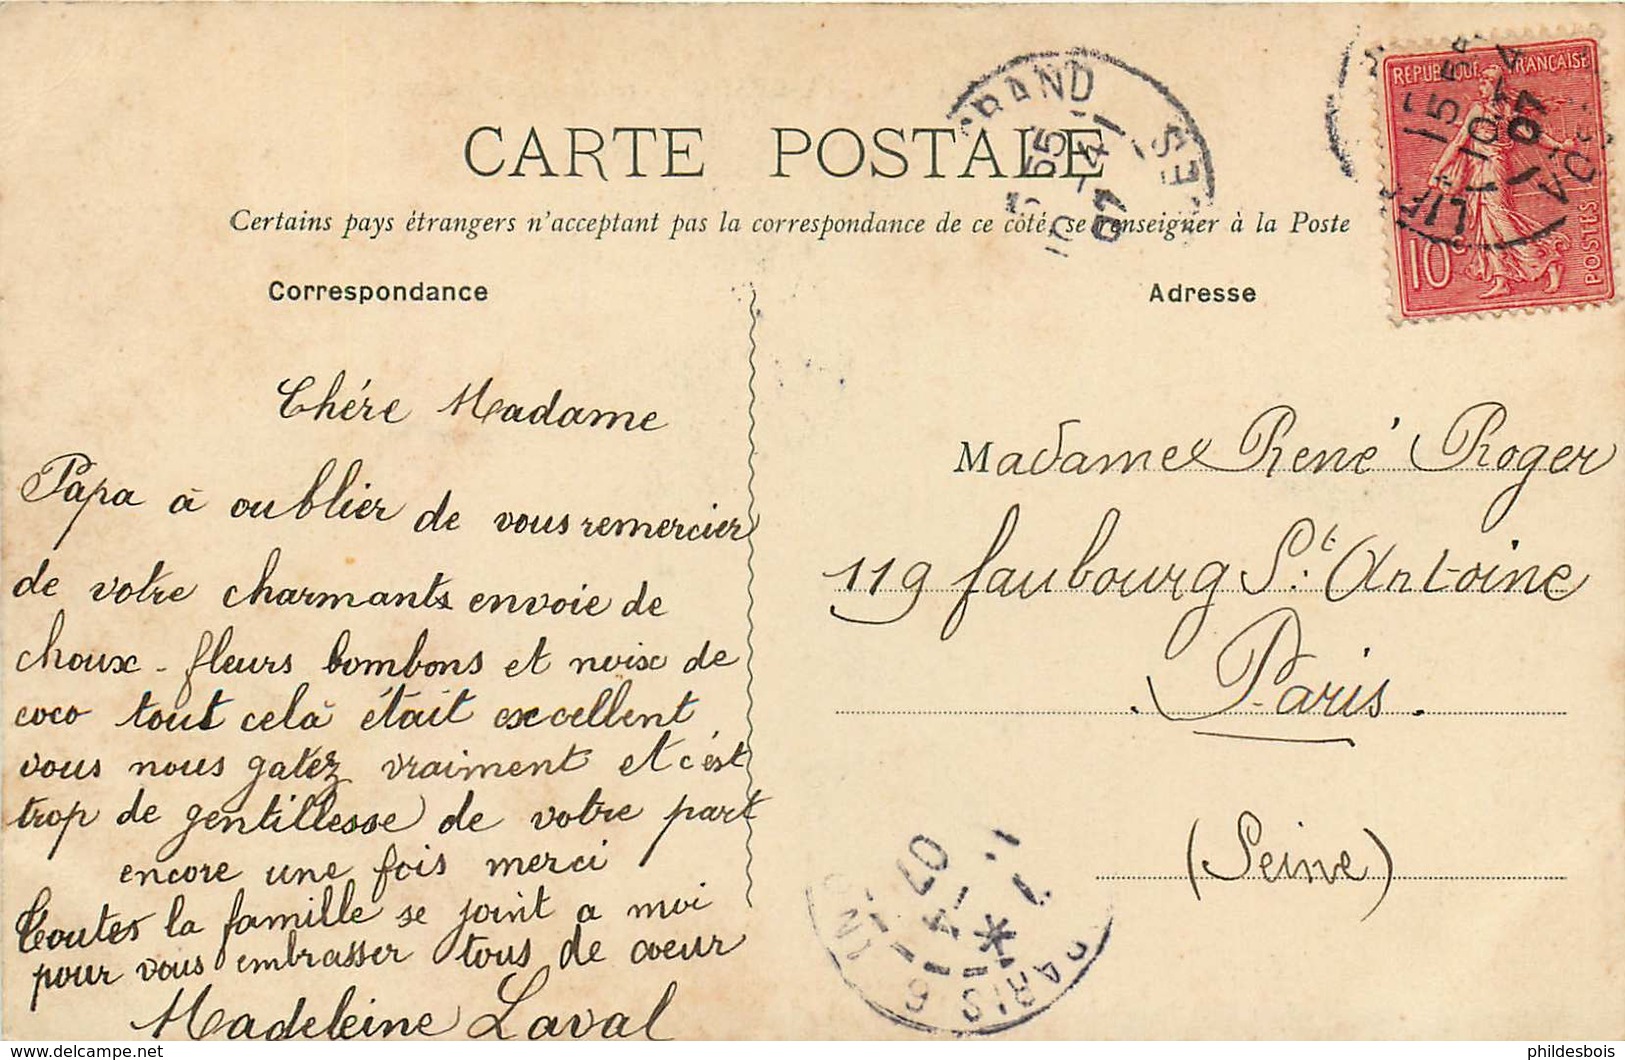 CARTE POSTALE
Certains pays étrangers n'acceptent pas la correspondance de ce côté, se renseigner à la Poste
Correspondance
Chére Madame
Papa à oublier de vous remercier
de votre charmants envoie de
choux-fleurs bombons et noix de
coco tout celà était excellent
vous nous gatez vraiment et c'est
trop de gentillesse de votre part
encore une fois merci
Toutes la famille se joint a moi
pour vous embrasser tous de coeur
Madeleine Laval
Adresse
Madame René Roger
119 faubourg St. Antoine
Paris.
(Seine)
REPUBLIQUE FRANÇAISE
POSTES
10c
15 55
10-4
07
10-4
07
PARIS
4
07
delcampe.net
phildesbois